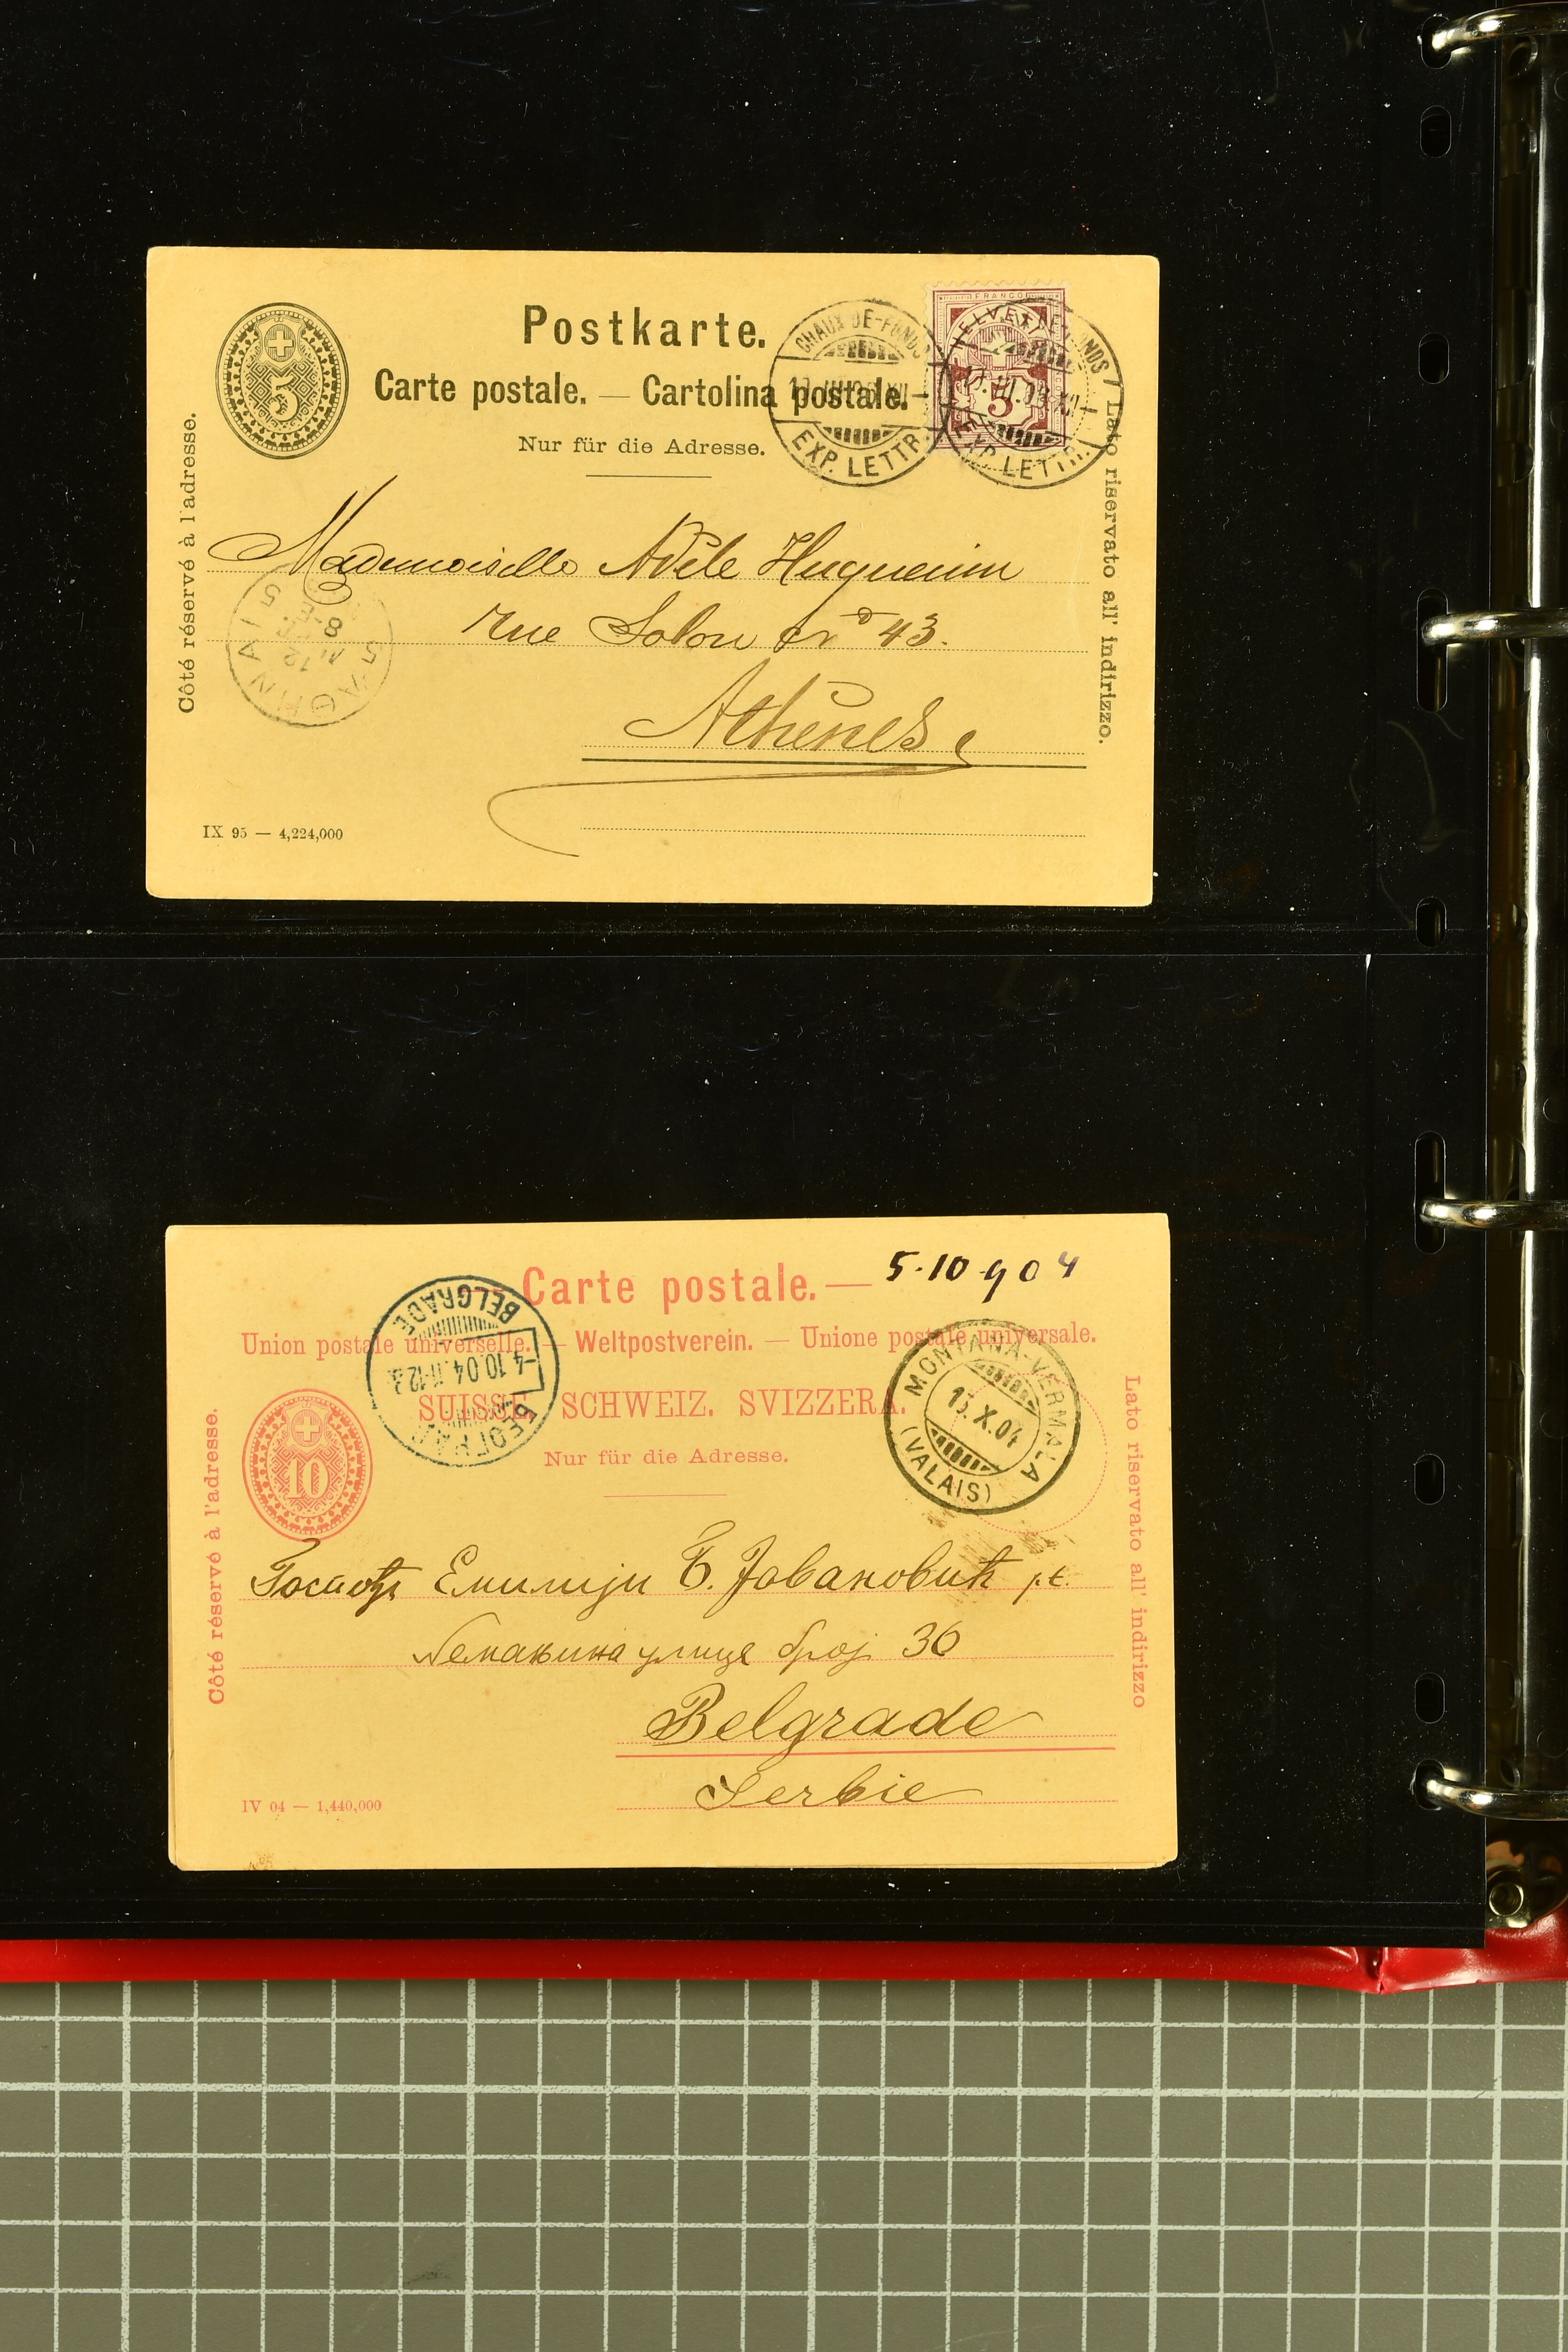 Postkarte.
Carte postale. — Cartolina postale.
Nur für die Adresse.
Côté réservé à l'adresse.
Lato riservato all' indirizzo.
5
CHAUX-DE-FONDS
EXP. LETTR.
FRANCO
HELVETIA
5
EXP. LETTR.
Mademoiselle Adèle Huguenin
rue Solon No 43.
Athènes
5
ΑΘΗΝΑΙ 5
12
8
IX 95 — 4,224,000
5·10·904
Carte postale. —
Union postale universelle. — Weltpostverein. — Unione postale universale.
SUISSE. SCHWEIZ. SVIZZERA.
Nur für die Adresse.
Côté réservé à l'adresse.
Lato riservato all' indirizzo
10
BELGRADE
-4.10.04.11-12
БЕОГРАД
MONTANA-VERMALA
X.04
(VALAIS)
Госпођи Емилији Б. Јовановић
Немањина улица број 36
Belgrade
Serbie
IV 04 — 1,440,000